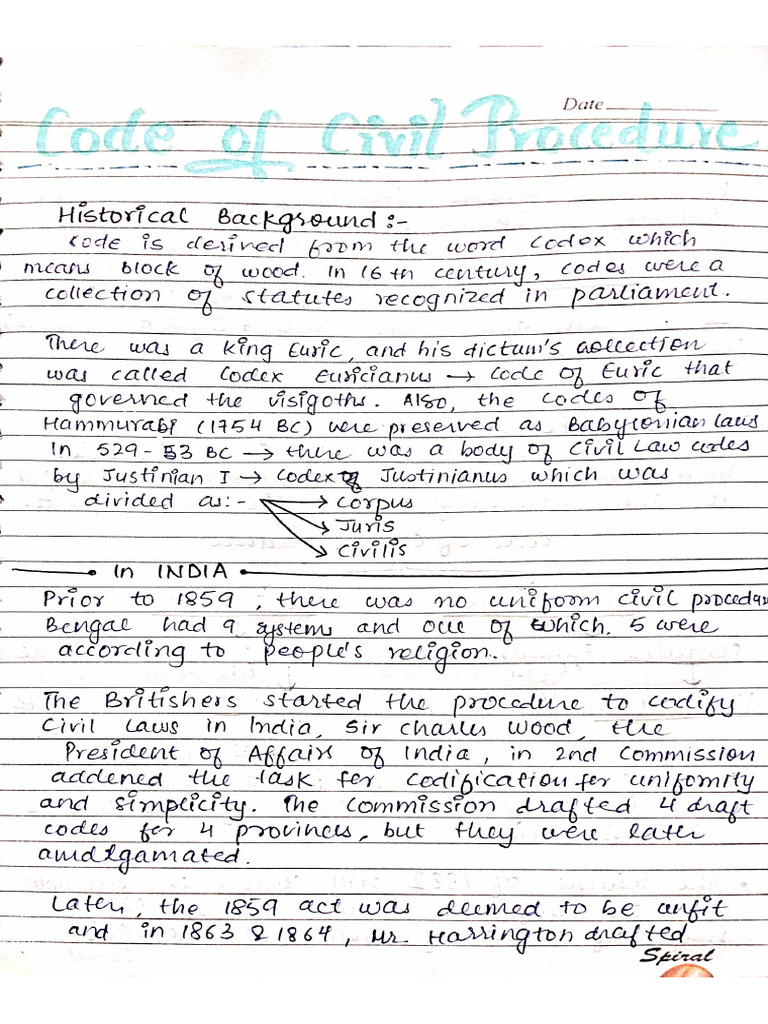 Date
Code of Civil Procedure
Historical Background :-
Code is derived from the word Codox which
means block of wood. In 16th century, codes were a
collection of statutes recognized in parliament.
There was a king Euric, and his dictum's collection
was called Codex Euricianus → Code of Euric that
governed the visigoths. Also, the codes of
Hammurabi (1754 BC) were preserved as Babylonian laws
In 529 - 53 BC → there was a body of Civil Law codes
by Justinian I → Codex Justinianus which was
divided as:- → Corpus
→ Juris
→ Civilis
In INDIA
Prior to 1859, there was no uniform civil procedu
Bengal had 9 systems and out of which, 5 were
according to people's religion.
The Britishers started the procedure to codify
Civil Laws in India, Sir Charles Wood, the
President of Affairs of India, in 2nd Commission
addened the task for codification for uniformity
and simplicity. The Commission drafted 4 draft
codes for 4 provinces, but they were later
amalgamated.
Later, the 1859 act was deemed to be unfit
and in 1863 & 1864, Mr. Harrington drafted
Spiral